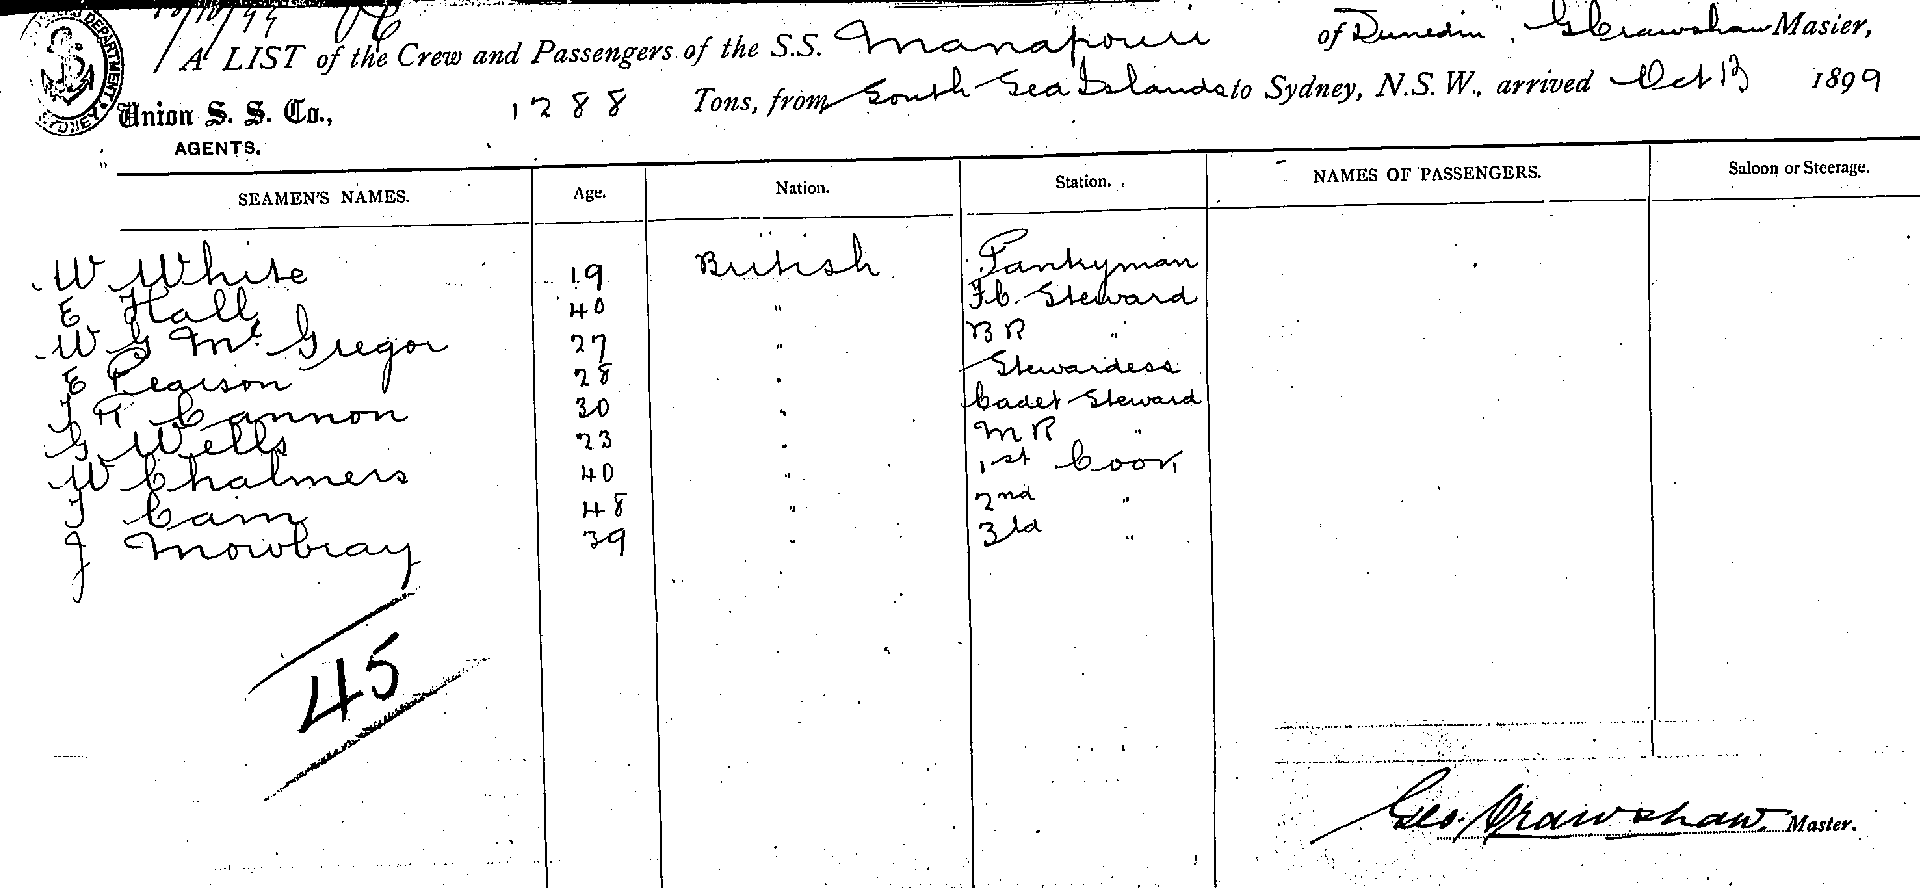 13/10/99
A LIST of the Crew and Passengers of the S.S. Manapouri of Dunedin, G Crawshaw Master,
Union S. S. Co., 1288 Tons, from South Sea Islands to Sydney, N.S.W., arrived Oct 13 1899
AGENTS.
DEPARTMENT SYDNEY
SEAMEN'S NAMES. Age. Nation. Station. NAMES OF PASSENGERS. Saloon or Steerage.
W White 19 British Pantryman
E Hall 40 " F.C. Steward
W G McGregor 27 " B R "
E Pearson 28 " Stewardess
J H Cannon 30 " Cadet Steward
G Wells 23 " M R "
W Chalmers 40 " 1st Cook
J Cam 48 " 2nd "
J Mowbray 39 " 3rd "
45
Geo. Crawshaw. Master.